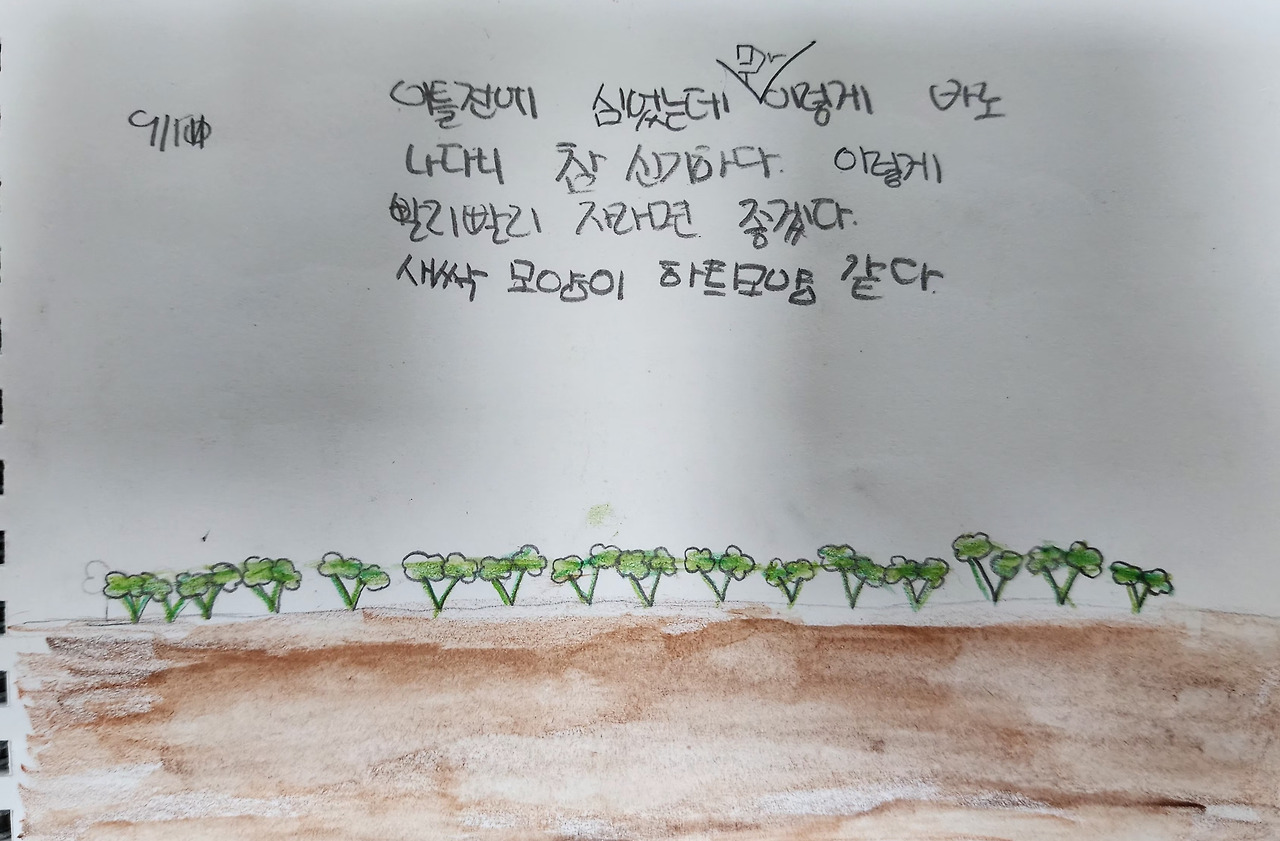 이틀전에 심었는데 이렇게 바로
나다니 참 신기하다. 이렇게
빨리빨리 자라면 좋겠다.
새싹 모양이 하트모양 같다.